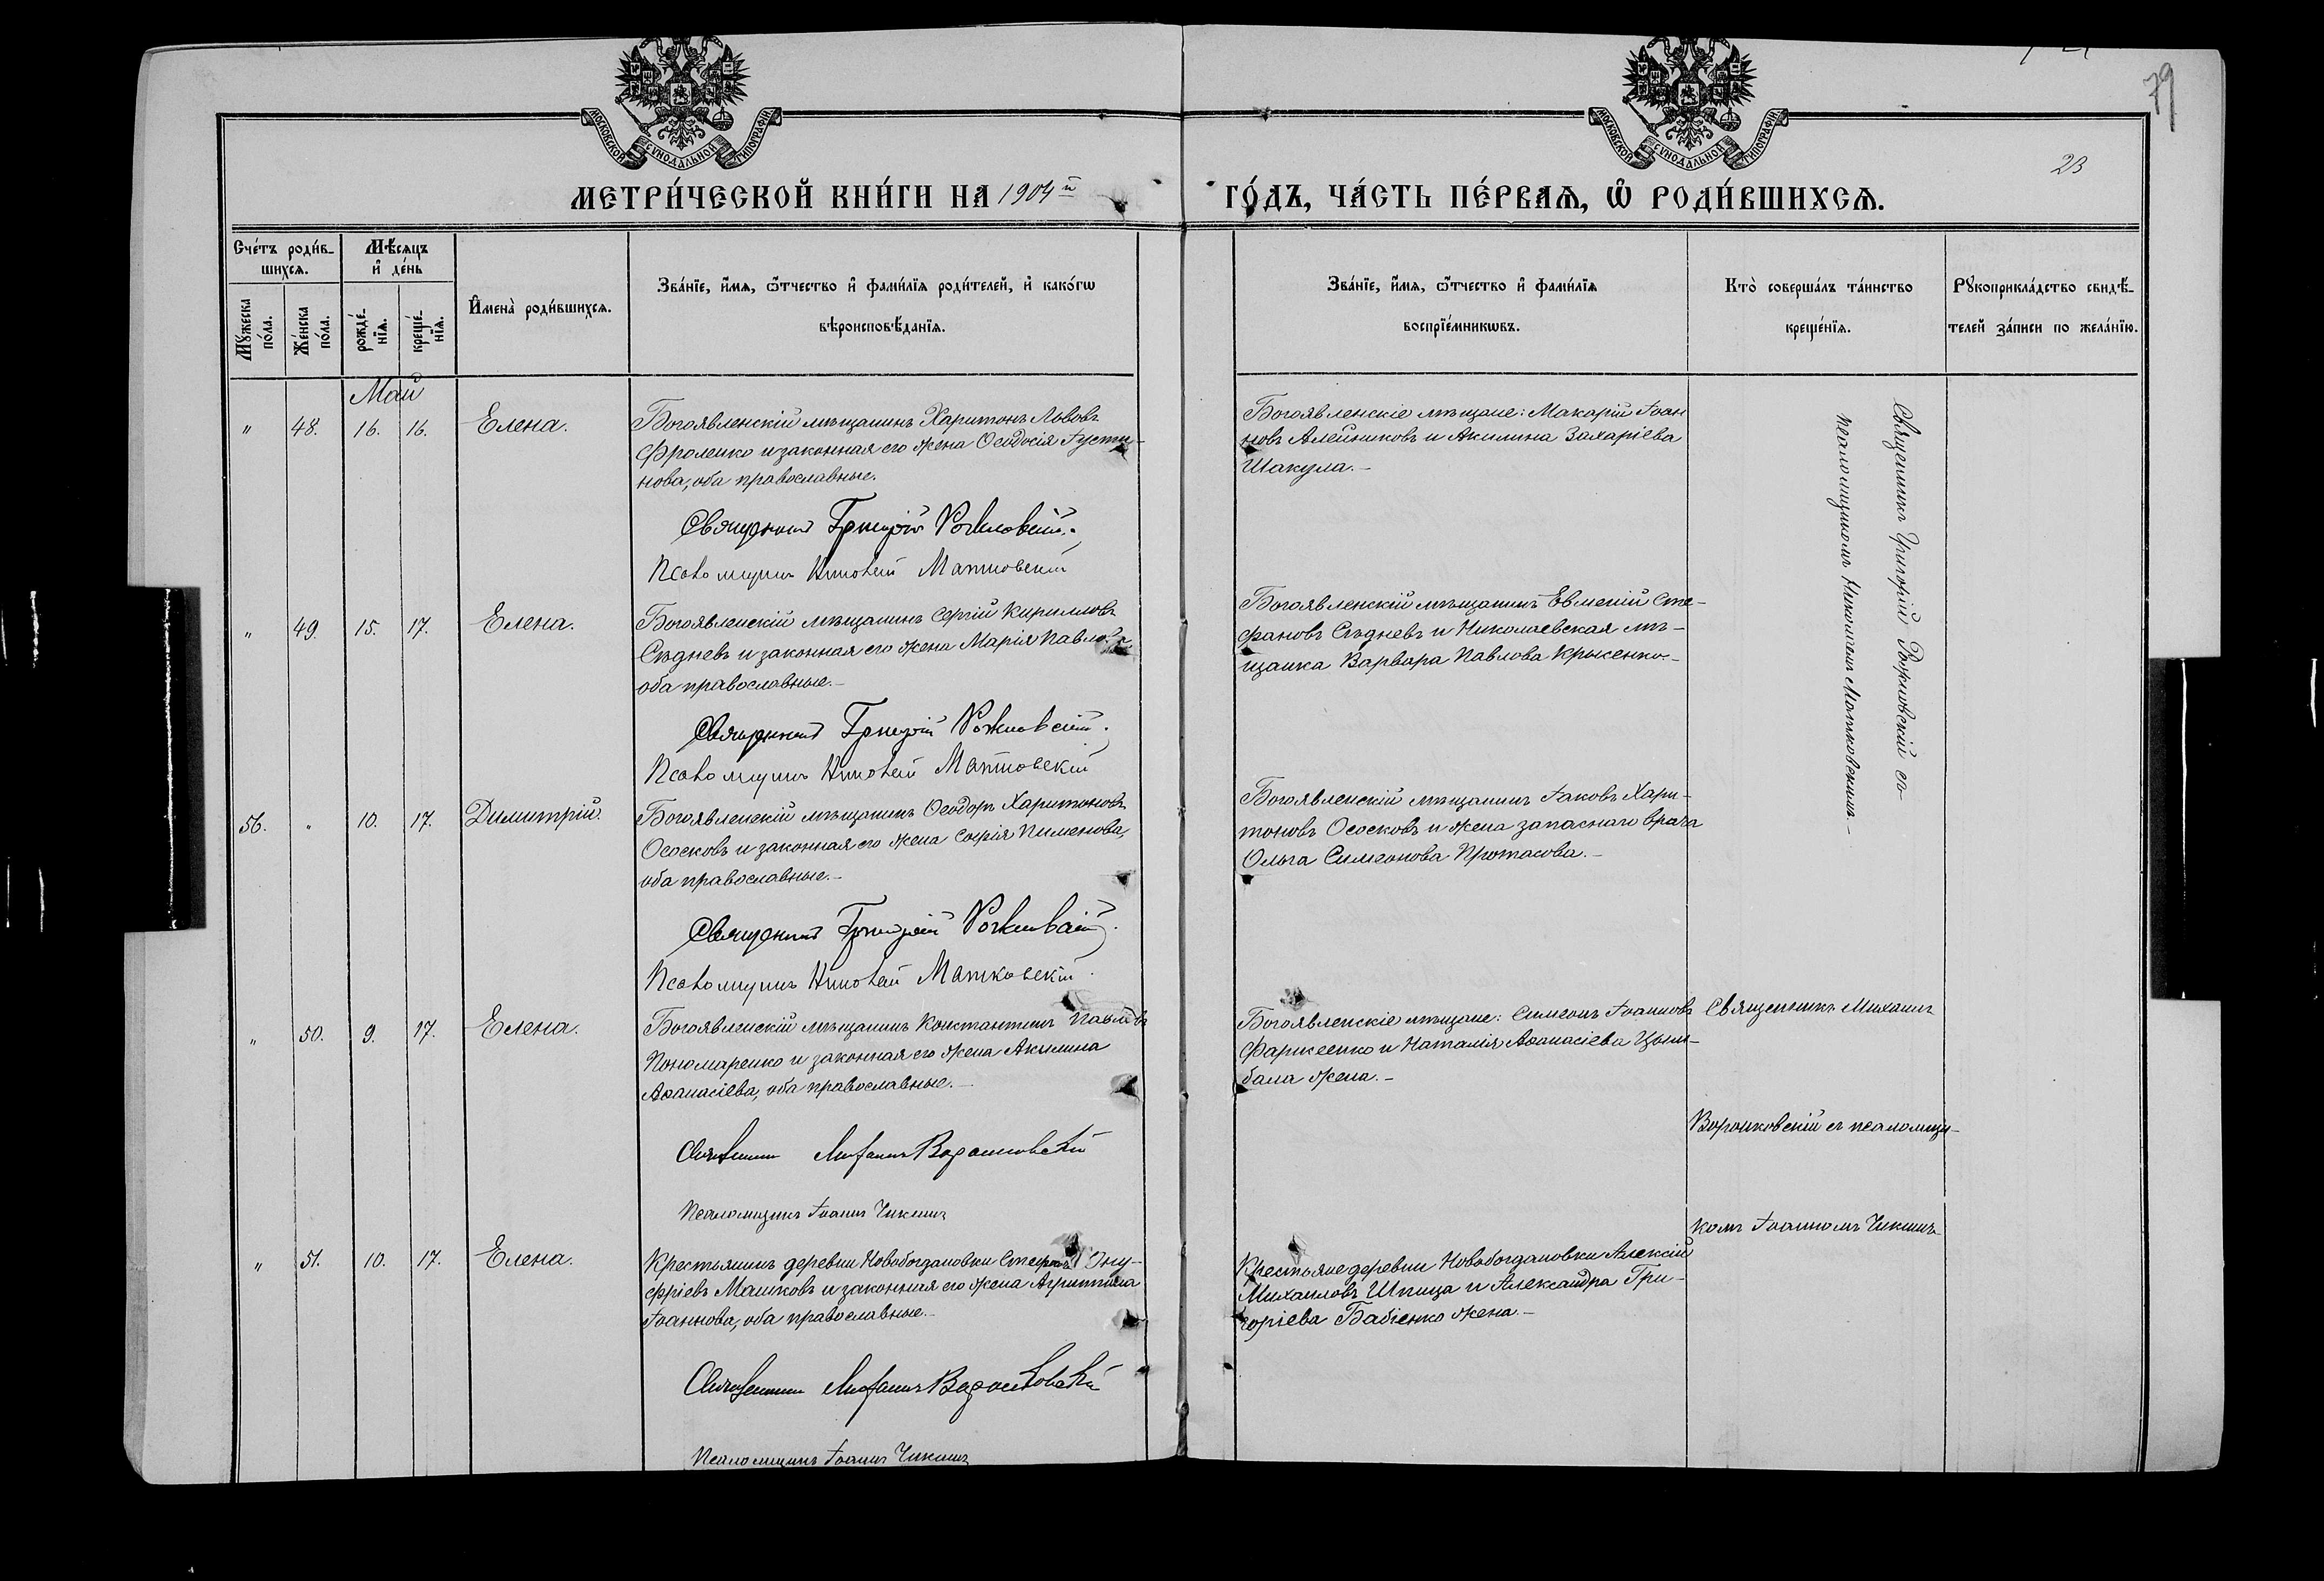 МОСКОВСКОЙ СѴНОДАЛЬНОЙ ТИПОГРАФІИ
МОСКОВСКОЙ СѴНОДАЛЬНОЙ ТИПОГРАФІИ
79
23
МЕТРИ́ЧЕСКОЙ КНИ́ГИ НА 1904й
ГО́ДЪ, ЧА́СТЬ ПЕ́РВАѦ, Ѽ РОДИ́ВШИХСѦ.
Сче́тъ роди́в-
шихсѧ.
Мꙋ́жеска
по́ла.
Же́нска
по́ла.
Мѣ́сѧцъ
и҆ де́нь
рожде́-
нїѧ.
креще́-
нїѧ.
И҆мена̀ роди́вшихсѧ.
Зва́нїе, и҆́мѧ, ѻ҆́тчество и҆ фами́лїѧ роди́телей, и҆ како́гѡ
вѣроисповѣ́данїѧ.
Зва́нїе, и҆́мѧ, ѻ҆́тчество и҆ фами́лїѧ
воспрїе́мникѡвъ.
Кто̀ соверша́лъ та́инство
креще́нїѧ.
Рꙋкоприкла́дство свидѣ́-
телей за́писи по жела́нїю.
Май
" 48. 16. 16. Елена.
Богоявленскій мѣщанинъ Харитонъ Львовъ
Фроленко и законная его жена Ѳеодосія Густи-
нова, оба православные.
Священникъ Григорій Рожновскій.
Псаломщикъ Николай Матковскій
Богоявленскіе мѣщане: Макарій Іоан
новъ Алейниковъ и Акилина Захаріева
Шакула.-
Священникъ Григорій Рожновскій съ
псаломщикомъ Николаемъ Матковскимъ.-
" 49. 15. 17. Елена.
Богоявленскій мѣщанинъ Сергій Кирилловъ
Сѣдневъ и законная его жена Марія Павлова
оба православные.-
Священникъ Григорій Рожновскій.
Псаломщикъ Николай Матковскій
Богоявленскій мѣщанинъ Евменій Сте-
фановъ Сѣдневъ и Николаевская мѣ-
щанка Варвара Павлова Крысенко.-
56. " 10. 17. Димитрій.
Богоявленскій мѣщанинъ Ѳеодоръ Харитоновъ
Ососковъ и законная его жена Софія Пименова,
оба православные.-
Священникъ Григорій Рожновскій.
Псаломщикъ Николай Матковскій.
Богоявленскій мѣщанинъ Іаковъ Хари-
тоновъ Ососковъ и жена запаснаго врача
Ольга Симеонова Протасова.-
" 50. 9. 17. Елена.
Богоявленскій мѣщанинъ Константинъ Павловъ
Пономаренко и законная его жена Акилина
Аѳанасіева, оба православные.-
Священникъ Михаилъ Воронковскій
Псаломщикъ Іоаннъ Чикишъ
Богоявленскіе мѣщане: Симеонъ Іоанновъ
и Наталія Аѳанасіева Цым-
бала жена.-
Священникъ Михаилъ
Воронковскій съ псаломщи-
комъ Іоанномъ Чикишъ
" 51. 10. 17. Елена.
Крестьянинъ деревни Новобогдановки Стефанъ Ону-
фріевъ Машковъ и законная его жена Агриппина
Іоаннова, оба православные.-
Священникъ Михаилъ Воронковскій
Псаломщикъ Іоаннъ Чикишъ
Крестьяне деревни Новобогдановки Алексій
Михаиловъ Шпица и Александра Гри-
горіева Бабіенко жена.-